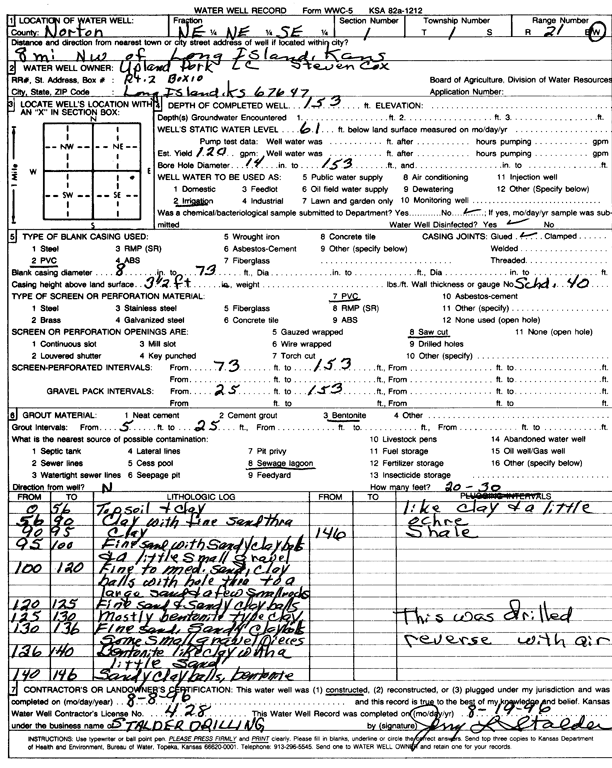 WATER WELL RECORD Form WWC-5 KSA 82a-1212
1 LOCATION OF WATER WELL: Fraction Section Number Township Number Range Number
County: Norton NE ¼ NE ¼ SE ¼ 1 T 1 S R 21 E/W
Distance and direction from nearest town or city street address of well if located within city?
8 mi NW of Long Island, Kans
2 WATER WELL OWNER: Upland Pork LC Steven Cox
RR#, St. Address, Box # : Rt. 2 Box 10 Board of Agriculture, Division of Water Resources
City, State, ZIP Code : Long Island, KS 67647 Application Number:
3 LOCATE WELL'S LOCATION WITH AN "X" IN SECTION BOX:
N
NW NE
W E
SW SE
S
1 Mile
4 DEPTH OF COMPLETED WELL 153 ft. ELEVATION:
Depth(s) Groundwater Encountered 1. ft. 2. ft. 3. ft.
WELL'S STATIC WATER LEVEL 61 ft. below land surface measured on mo/day/yr
Pump test data: Well water was ft. after hours pumping gpm
Est. Yield 120 gpm Well water was ft. after hours pumping gpm
Bore Hole Diameter 14 in. to 153 ft., and in. to ft.
WELL WATER TO BE USED AS: 5 Public water supply 8 Air conditioning 11 Injection well
1 Domestic 3 Feedlot 6 Oil field water supply 9 Dewatering 12 Other (Specify below)
2 Irrigation 4 Industrial 7 Lawn and garden only 10 Monitoring well
Was a chemical/bacteriological sample submitted to Department? Yes No ✓; If yes, mo/day/yr sample was sub-
mitted Water Well Disinfected? Yes ✓ No
5 TYPE OF BLANK CASING USED: 5 Wrought iron 8 Concrete tile CASING JOINTS: Glued ✓ Clamped
1 Steel 3 RMP (SR) 6 Asbestos-Cement 9 Other (specify below) Welded
2 PVC 4 ABS 7 Fiberglass Threaded
Blank casing diameter 8 in. to 73 ft., Dia in. to ft., Dia in. to ft.
Casing height above land surface 3 1/2 ft in., weight lbs./ft. Wall thickness or gauge No. Schd. 40
TYPE OF SCREEN OR PERFORATION MATERIAL: 7 PVC 10 Asbestos-cement
1 Steel 3 Stainless steel 5 Fiberglass 8 RMP (SR) 11 Other (specify)
2 Brass 4 Galvanized steel 6 Concrete tile 9 ABS 12 None used (open hole)
SCREEN OR PERFORATION OPENINGS ARE: 5 Gauzed wrapped 8 Saw cut 11 None (open hole)
1 Continuous slot 3 Mill slot 6 Wire wrapped 9 Drilled holes
2 Louvered shutter 4 Key punched 7 Torch cut 10 Other (specify)
SCREEN-PERFORATED INTERVALS: From 73 ft. to 153 ft., From ft. to ft.
From ft. to ft., From ft. to ft.
GRAVEL PACK INTERVALS: From 25 ft. to 153 ft., From ft. to ft.
From ft. to ft., From ft. to ft.
6 GROUT MATERIAL: 1 Neat cement 2 Cement grout 3 Bentonite 4 Other
Grout Intervals: From 5 ft. to 25 ft., From ft. to ft., From ft. to ft.
What is the nearest source of possible contamination: 10 Livestock pens 14 Abandoned water well
1 Septic tank 4 Lateral lines 7 Pit privy 11 Fuel storage 15 Oil well/Gas well
2 Sewer lines 5 Cess pool 8 Sewage lagoon 12 Fertilizer storage 16 Other (specify below)
3 Watertight sewer lines 6 Seepage pit 9 Feedyard 13 Insecticide storage
Direction from well? N How many feet? 20-30
FROM TO LITHOLOGIC LOG FROM TO PLUGGING INTERVALS
0 56 Topsoil & clay like clay & a little
56 90 Clay with fine sand thru ochre
90 95 Clay 146 Shale
95 100 Fine sand with Sandy clay balls
& a little small gravel
100 120 Fine to med. sand, clay
balls with hole thru to a
large sand & a few small rocks
120 125 Fine sand & Sandy clay balls
125 130 Mostly bentonite type clay This was drilled
130 136 Fine sand, Sandy clay balls reverse with air
Some small gravel pieces
136 140 Bentonite like clay with a
little sand
140 146 Sandy clay balls, bentonite
7 CONTRACTOR'S OR LANDOWNER'S CERTIFICATION: This water well was (1) constructed, (2) reconstructed, or (3) plugged under my jurisdiction and was
completed on (mo/day/year) 8-8-96 and this record is true to the best of my knowledge and belief. Kansas
Water Well Contractor's License No. 428 This Water Well Record was completed on (mo/day/yr) 8-19-96
under the business name of STALDER DRILLING by (signature) Jerry L Stalder
INSTRUCTIONS: Use typewriter or ball point pen. PLEASE PRESS FIRMLY and PRINT clearly. Please fill in blanks, underline or circle the correct answers. Send top three copies to Kansas Department
of Health and Environment, Bureau of Water, Topeka, Kansas 66620-0001. Telephone: 913-296-5545. Send one to WATER WELL OWNER and retain one for your records.